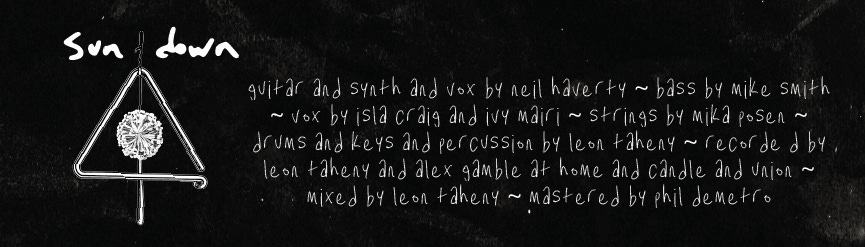 sun down
guitar and synth and vox by neil haverty ~ bass by mike smith
~ vox by isla craig and ivy mairi ~ strings by mika posen ~
drums and keys and percussion by leon taheny ~ recorde d by
leon taheny and alex gamble at home and candle and union ~
mixed by leon taheny ~ mastered by phil demetro